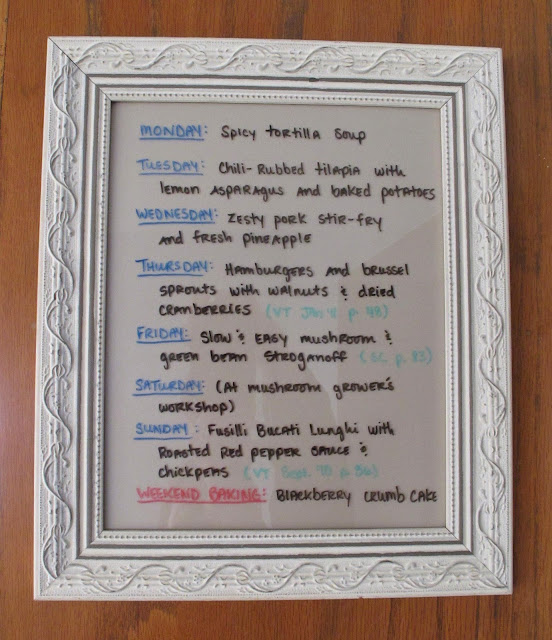 MONDAY: Spicy tortilla soup
TUESDAY: Chili-Rubbed tilapia with
lemon ASPARAGUS and baked potatoes
WEDNESDAY: Zesty pork stir-fry
and fresh pineapple
THURSDAY: Hamburgers and brussel
sprouts with walnuts & dried
cranberries (VT p. 48)
FRIDAY: Slow & EASY mushroom &
green bean Stroganoff (SC p. 83)
SATURDAY: (At mushroom grower's
workshop)
SUNDAY: Fusilli Bucati Lunghi with
Roasted Red pepper sauce &
chickpeas (VT Sept. p.
WEEKEND BAKING: Blackberry crumb cake